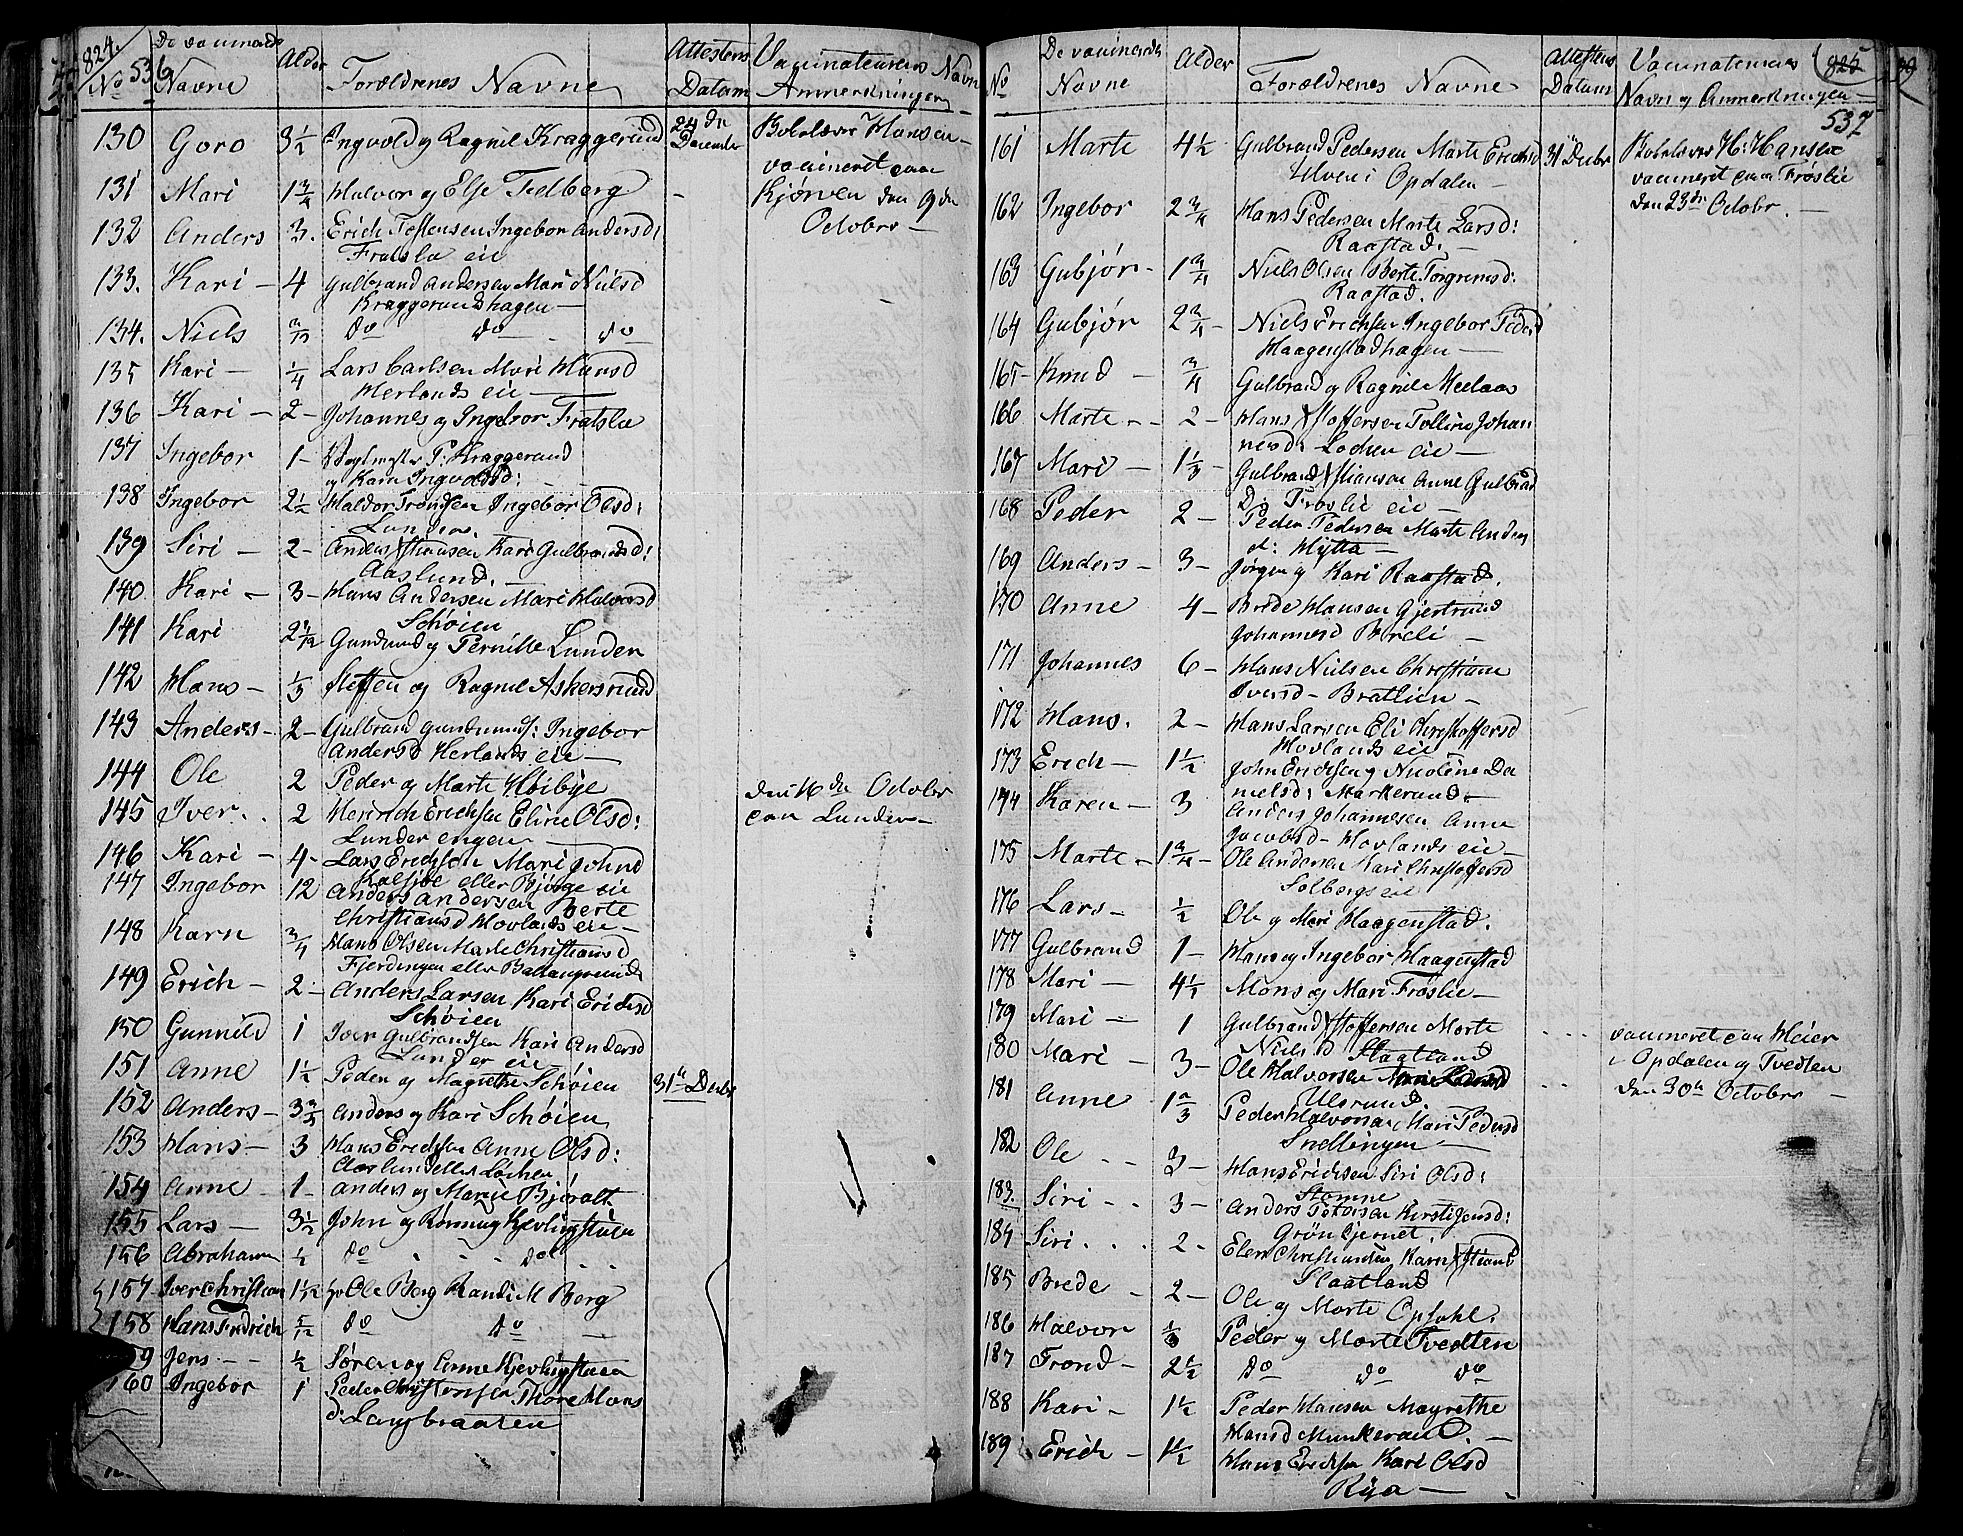 824.
536
De vaccinerede
Navne
No
Alder
Forældrenes Navne
Attestens
Datum
Vaccinateurens Navn
Anmerkninger
130 Goro 3½ Ingvold og Ragnil Kraggerund 24 de December Hansen
vaccineret paa
131 Mari 1¾ Halvor og Else Tedberg - Kjørven den 9de
132 Anders 3. Erich Ingebor Andersd: Octobr
eie
133. Kari - 4 Gulbrand Andersen Mari Nielsd
Kraggerundhagen
134. Niels do do do
135 Kari - ¼ Lars Carlsen Mari Hansd
Herlands eie
136 Kari - 2 - Johannes og Ingebor
137 Ingebor 1 - P: Kraggerund
og Kari Ingvoldsd:
138 Ingebor 2½ Haldor Trondsen Ingebor Olsd:
Lunder
139 Siri - 2 - Anders Kari Gulbrandsd:
Aaslund.
140 Kari - 3 - Hans Andersen Mari Halvorsd
Schøien
141 Kari Gundmund og Pernille Lunder
142 Hans - Steffen og Ragnil Askersrud
143 Anders - 2 - Gulbrand Gundmunds: Ingebor
Andersd Herlands eie
144 Ole 2 Peder og Marte Høibye den 16 de Octobr
145 Iver 2 Henrich Erichsen Eline Olsd: paa Lunder
Lunder engen
146 Kari - 4 - Lars Erichsen Mari Johnsd
eller Bjørge eie
147 Ingebor 12 Anders Andersen Berte
Christiansd Hovlands eie
148 Karn ¾ Hans Olsen Marte Christiansd
Fjerdingen eller
149 Erich - 2 - Anders Larsen Kari Erichsd
Schøien
150 Gunnild 1 Iver Gulbrandsen Kari Andersd
Lunder eie
151 Anne 1½ Peder og Magrethe Schøien 31te Decbr
152 Anders - Anders og Kari Schøien
153 Hans - 3 Hans Erichsen Anne Olsd:
Aaslund eller Løchen
154 Anne - 1 - Anders og Marie
155 Lars - 3½ John og Rønnaug
156 Abraham do do
157 Iver Christian 1½ Ole Berg Randi M Berg
158 Hans Fredrich do do
159 Jens - ½ Søren og Anne
160 Ingebor 1 Peder Thore Hans
d: Langbraaten
825
99
537
No
De vaccinerede
Navne
Alder
Forældrenes Navne
Attestens
Datum
Vaccinateurens
Navn og Anmerkninger
161 Marte 4½ Gulbrand Pedersen Marte Erichsd 31te Decbr H: Hansen
i Opdalen vaccineret paa Frøslie
162 Ingebor 2¾ Hans Pedersen Marte Larsd: den 23de Octobr.
Raastad.
163 Gubjør - 1¾ Niels Olsen Berte Torgrimsd:
Raastad.
164 Gubjør 2¾ - Niels Erichsen Ingebor Peders
Haagenstadhagen
165 - Knud - ¾ Gulbrand og Ragnil Meelaas
166 Marte - 2 - Hans Johan
nesd: Lochen eie
167 Mari - 1⅓ - Gulbrand Anne Gulbrand
D: Frøslie eie
168 Peder 2 - Peder Pedersen Marte Anders
d: Hytta
169 Anders - 3 - Jørgen og Kari Raastad.
170 Anne 4 - Brede Hansen Gjertrud
Johannesd
171 Johannes 6 - Hans Nielsen Christiane
Iversd - Bratlien
172 Hans. 2 - Hans Larsen Eli Christoffersd
Hovlands eie
173 Erich - 1½ John Erichsen og Nicoline Da
nielsd: Markerud
174 Karen - 3 Anders Johannesen Anne
Jacobsd - Hovlands eie
175 Marte - 1¾ - Ole Andersen Kari Christoffersd
Solbergs eie
176 Lars - ½ Ole og Mari Haagenstad.
177 Gulbrand 1 - Hans og Ingebor Haagenstad
178 Mari - 4½ Mons og Mari Frøslie
179 Mari - 1 Gulbrand Marte vaccineret paa Meier
Nielsd Slaatland i Opdalen og Tvedten
180 Mari - 3 - Ole Halvorsen den 30te Octobr
Ulsrund.
181 Anne Peder Halvorsen Mari Pedersd
Snellingen
182 Ole 3 - Hans Erichsen Siri Olsd:
183. Siri 3 - Anders Pedersen Kirsti Jensd:
Grøntjernet
184 Siri 2 - Christiansen Karn
Slaatland
185 Brede - 2 - Ole og Marte Opsahl.
186 Halvor Peder og Marte Tvedten
187 Trond - 2½ do do do
188 Kari - 1½ Peder Hansen Magrethe
Hansd Munkerud
189 Erich - 1½ Hans Erichsen Kari Olsd
Rya